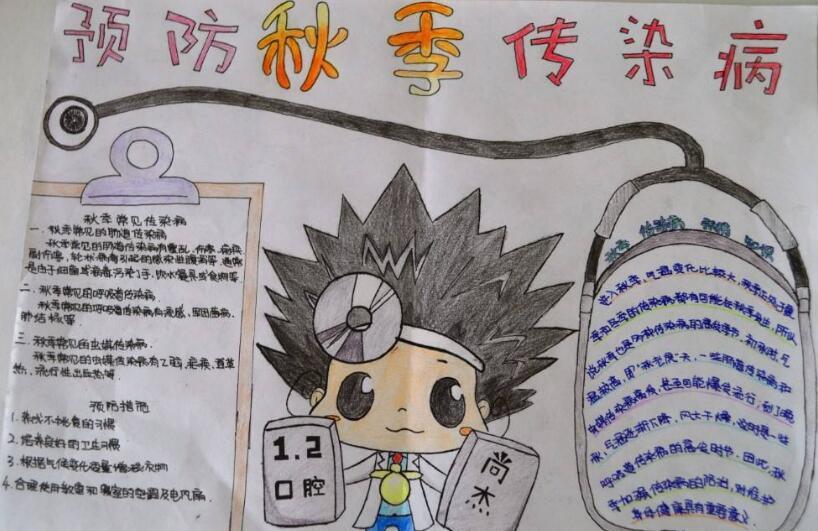 预防秋季传染病
秋季常见传染病
一、秋季常见的肠道传染病
秋季常见的肠道传染病有霍乱、伤寒、痢疾
副伤寒、轮状病毒引起的感染性腹泻等，通常
是由于细菌或病毒污染了手、饮水餐具或食物等.
二、秋季常见的呼吸道传染病.
秋季常见的呼吸道传染病有流感、军团菌病、
肺结核等.
三、秋季常见的虫媒传染病.
秋季常见的虫媒传染病有乙脑、疟疾、登革
热、流行性出血热等.
预防措施
1.养成不挑食的习惯
2.培养良好的卫生习惯
3.根据气候变化适量增减衣物
4.合理使用教室和寝室的空调及电风扇.
1.2
口腔
尚
杰
秋季 传染病 预防 知识
进入秋季，气温变化比较大，秋季正处于夏
季和冬季的传染病都有可能在秋季发生，所以
说秋季也是多种传染病的高发季节.初秋时气
温较高，因"秋老虎"天，一些肠道传染病和
虫媒传染病高发，甚至可能爆发流行；到了晚
秋，气温逐渐下降，风大干燥，这时是一些
呼吸道传染病的高发时节.因此，秋
季加强传染病的防治，对维护
身体健康具有重要意义